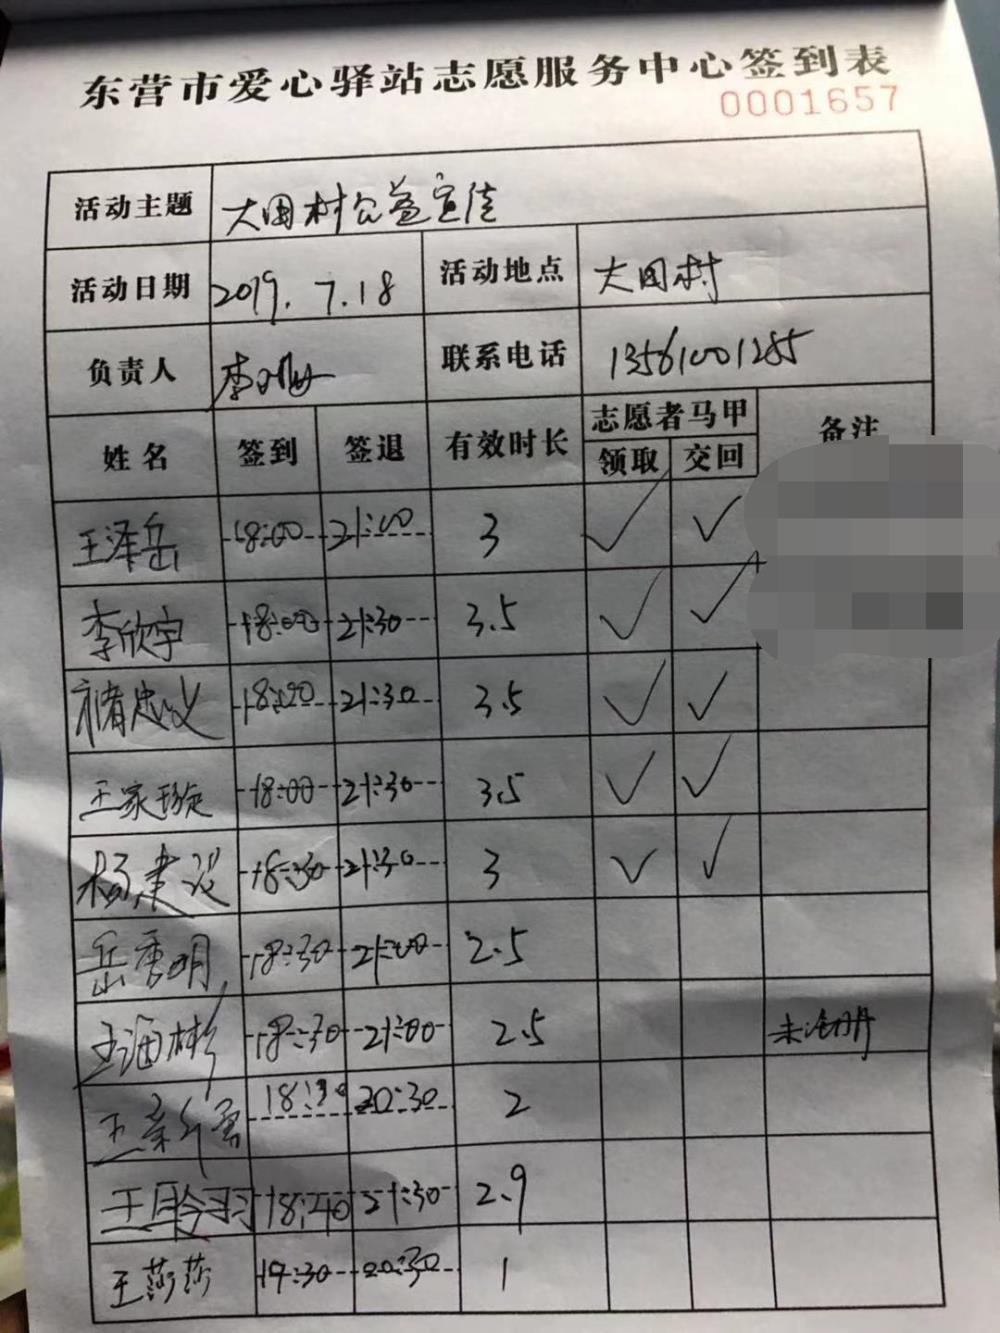 东营市爱心驿站志愿服务中心签到表
0001657
活动主题 大田村公益宣传
活动日期 2019.7.18 活动地点 大田村
负责人 联系电话 13561001285
姓名 签到 签退 有效时长 志愿者马甲 备注
领取 交回
王泽岳 18:00 21:00 3 ✓ ✓
李欣宇 18:00 21:30 3.5 ✓ ✓
褚忠义 18:00 21:30 3.5 ✓ ✓
王家璇 18:00 21:30 3.5 ✓ ✓
杨建设 18:30 21:30 3 ✓ ✓
岳秀明 18:30 21:00 2.5
王海彬 18:30 21:00 2.5 未注册
王新 18:30 20:30 2
王聆羽 18:40 21:30 2.9
王莎莎 19:30 20:30 1